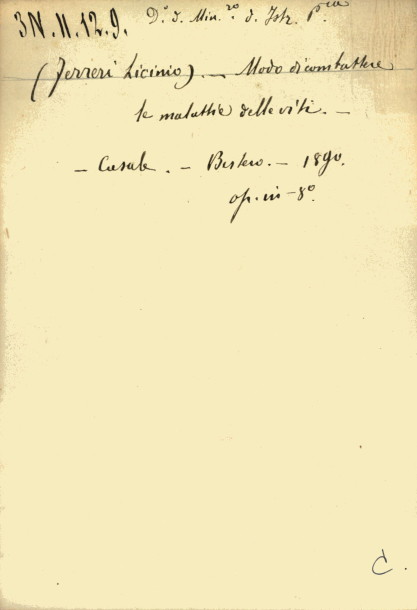 3N.II.12.9.
D.º d. Min.ro d. Istr. P.ca
(Ferreri Licinio). — Modo di combattere
le malattie delle viti. —
— Casale. — Bertero. — 1890.
op. in-8º.
C.